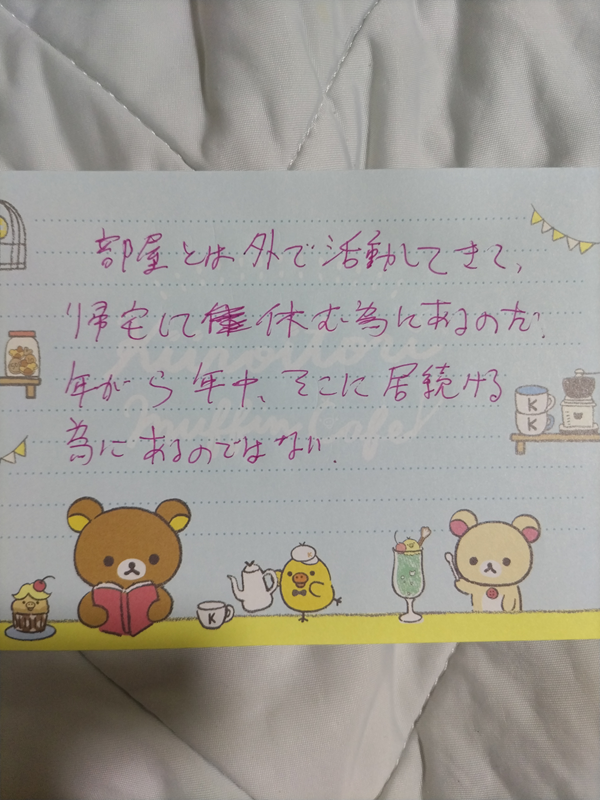 部屋とは外で活動してきて、
帰宅して休む為にあるのだ。
年がら年中、そこに居続ける
為にあるのではない。
Rilakkuma
Muffin Cafe
K
K
K